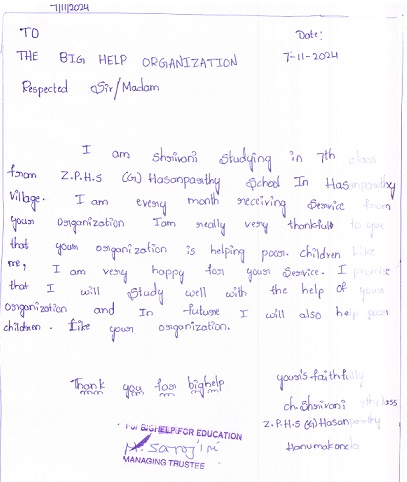 7/11/2024
TO
Date:
THE BIG HELP ORGANIZATION
7-11-2024
Respected Sir/Madam
I am Shrivani studying in 7th class
from Z.P.H.S (G) Hasanparthy School In Hasanparthy
village. I am every month receiving Service from
your organization Iam really very thankfull to you
that your organization is helping poor. children like
me, I am very happy for your Service. I promise
that I will Study well with the help of your
organization and In future I will also help poor
children. Like your organization.
Thank you for bighelp
your's faithfully
ch. Shrivani 7th class
Z.P.H.S (G) Hasanparthy
Hanumakonda
For BIGHELP FOR EDUCATION
N. Sarojini
MANAGING TRUSTEE